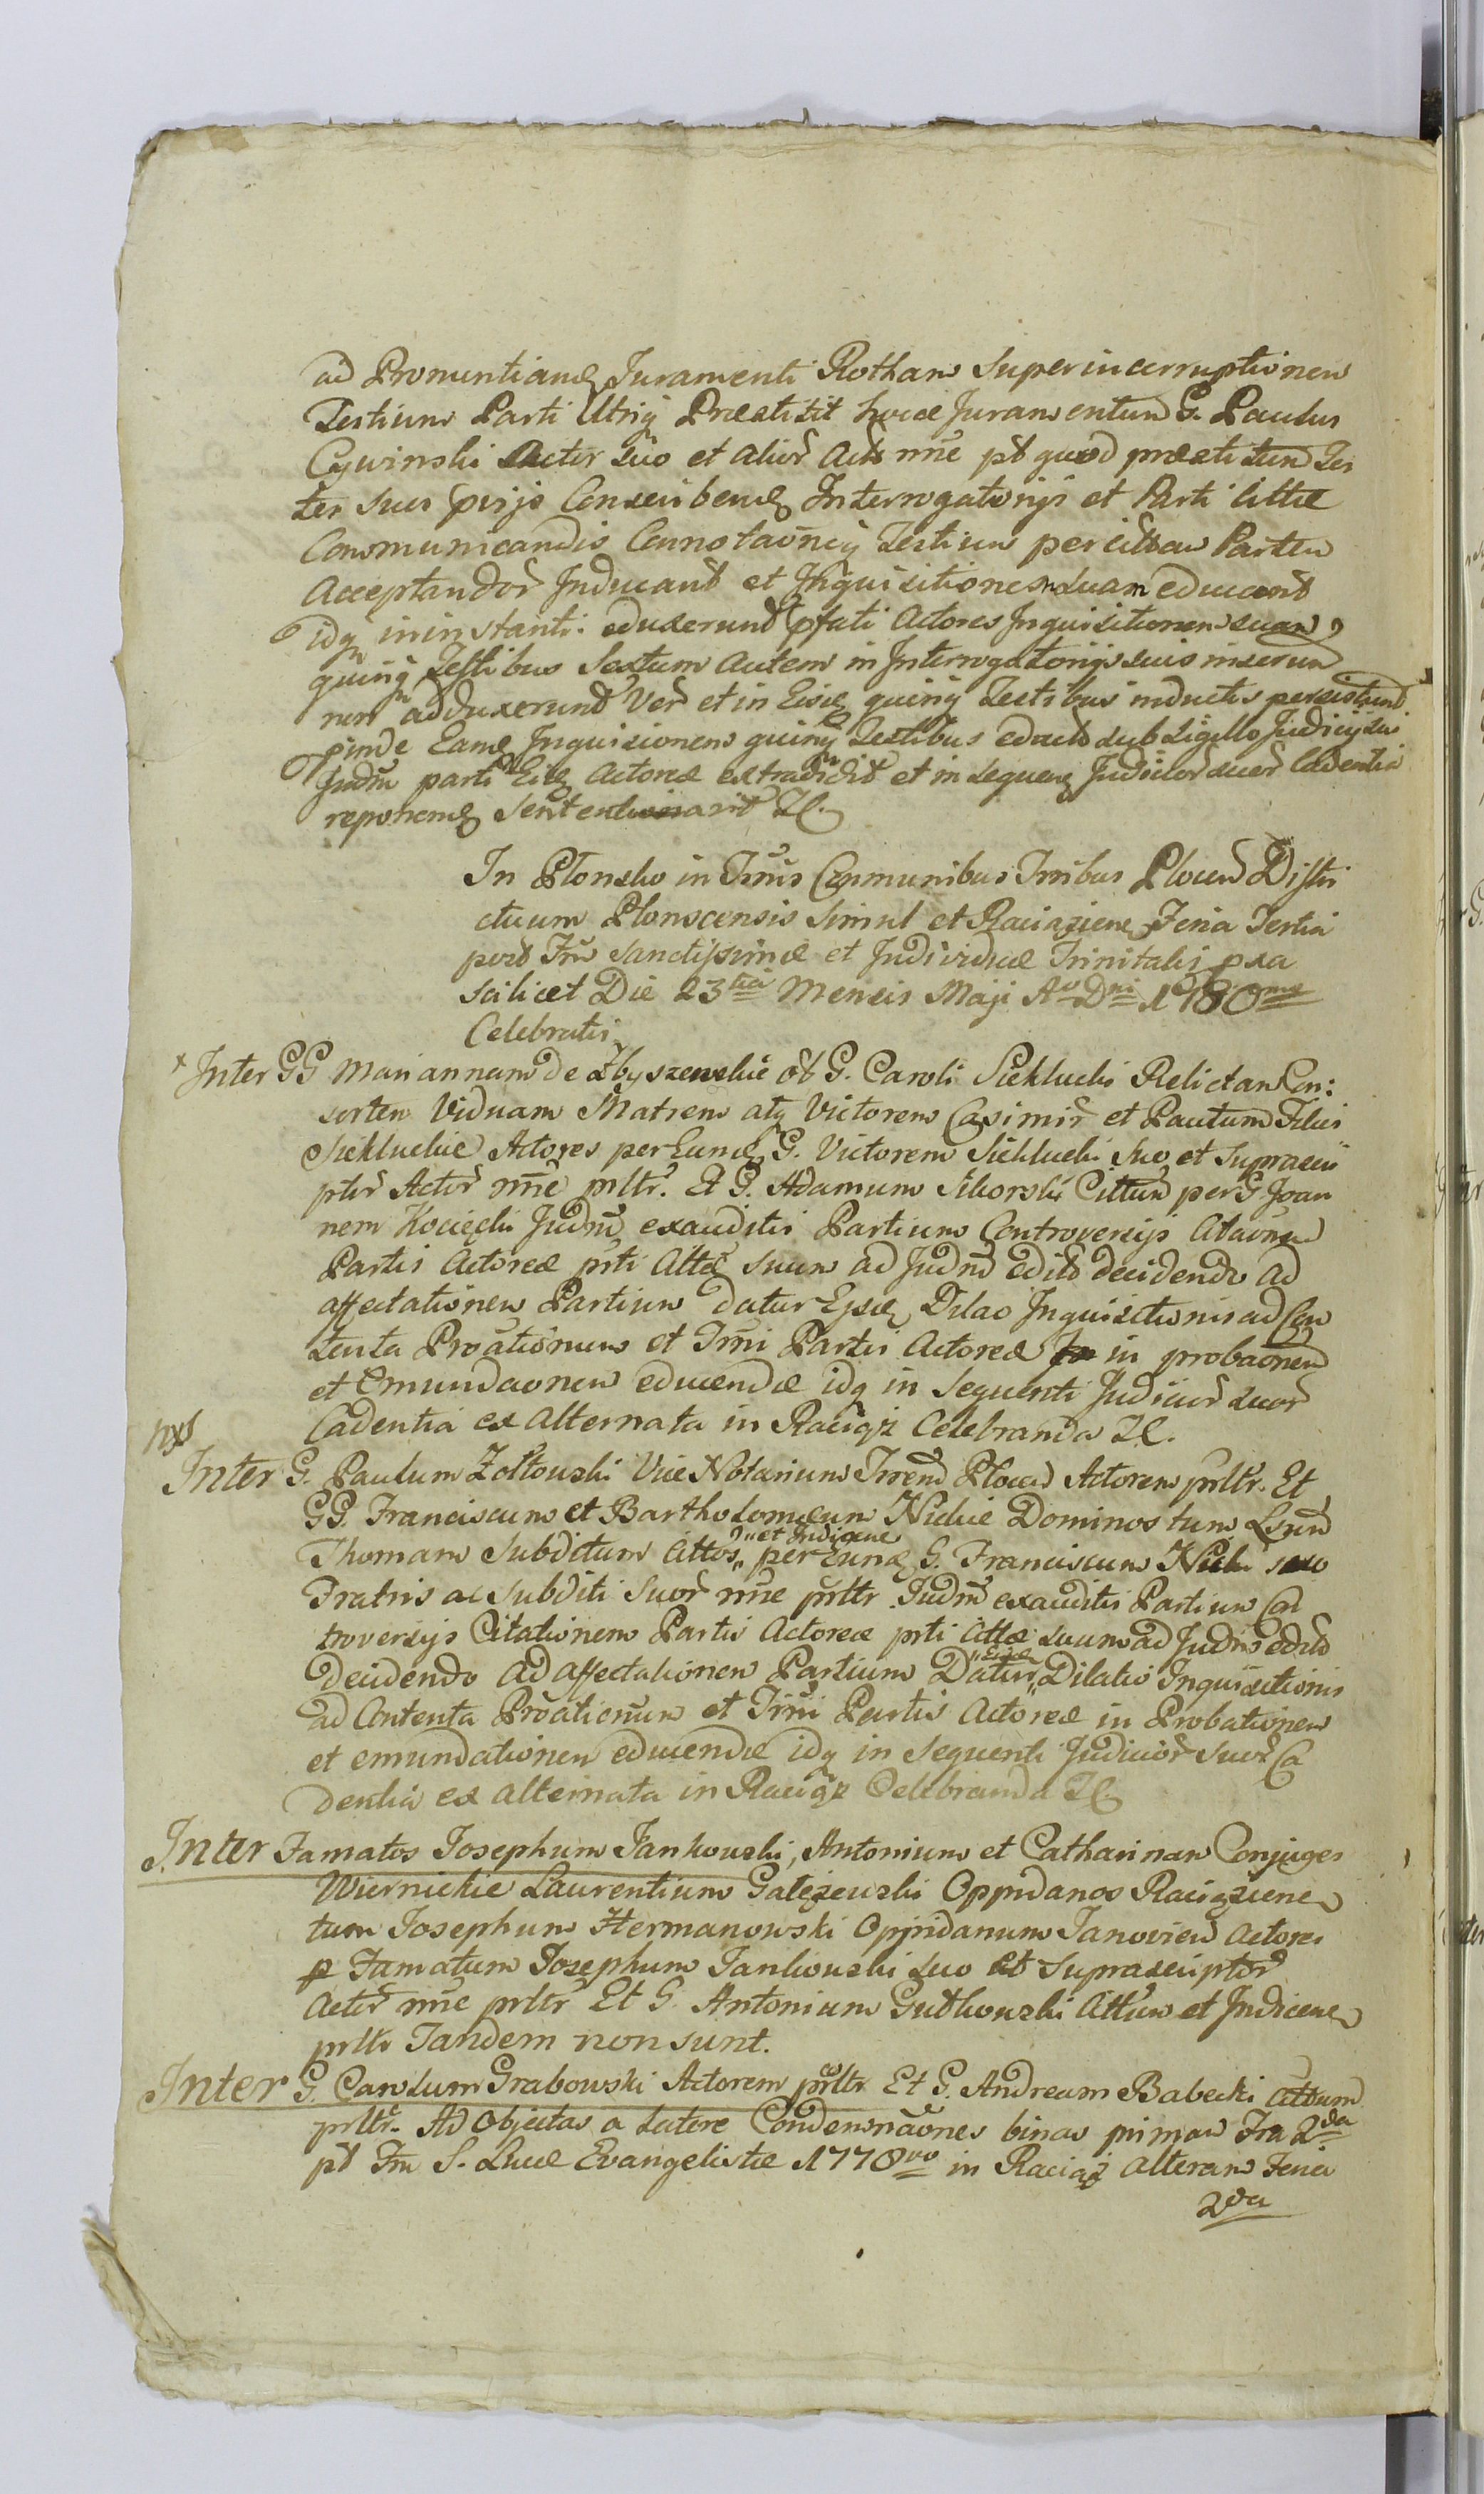 ad Pronuntiand Juramenti Rotham Superincorruptionem
Testium Parti Utrig Præstitit hocce Juramentum G. Paulus
Cywinski Actor Suo et alior Act nne pt quod præstitum Tes
tes suos Conscribend Interrogatorijs et Parti Cittæ
Communicandis Connotaõneq Testium per cittam Partem
Acceptandor Inducant et Inquisitionem Suam educant
idq in instanti. eduxerunt pfati Actores Inquisitionem suam
quinq Testibus Sextum autem in Interrogatorijs suis insertum
non adduxerunt Ver et in Eisd quinq Testibus inductis persistunt
pinde Eand Inquisionem quinq Testibus educt sub Sigillo Judicij sui
Judm parti Eid Actoreæ extradidit et in sequen Judicior suor Cadentia
reponend Sententionarunt Zl.
In Plonsko in Trnis Communibus Trribus Plocen Distri
ctuum Plonscensis Simul et Raciąziens Feria Tertia
post Fm Sanctissimæ et Individuæ Trinitatis pxa
Scilicet Die 23tia Mensis Maji Ao Dni 1780mo
Celebratis
* Inter GG Mariannam de Zbyszewskie ol G. Caroli Sieklucki Relictam Con:
sortem Viduam Matrem atq Victorem Casimir et Paulum Filios
Siekluckie Actores per Eund G. Victorem Sieklucki Suo et Suprascri
ptor Actor nne prltr. Et G. Adamum Sikorski Cittum per G Joan
nem Kocięcki Judm exauditis Partium Controversijs Citaõnem
Partis Actoreæ prti Cittæ suum ad Judm edito decidendo ad
affectationem Partium datur Eisd Dilao Inquisitionis ad Con
tenta Proationum et Trni Partis Actoreæ in probaonem
et Emundaonem educendæ idq in Sequenti Judicior suor
Cadentia ex Alternata in Raciąz Celebranda Zl.
nxt
Inter G. Paulum Zołtowski Vice Notarium Trrem Plocen Actorem prltr. Et
GG. Franciscum et Bartholomæum Nickie Dominos tum
Thomam Subditum Cittos "et Indigene" per Eund G. Franciscum Nicki suo
Fratris ac Subditi Suor nne prltr Judm exauditis Partium Con
troversijs Citationem Partis Actoreæ prti Cittæ suum ad Judm edito
decidendo ad affectationem Partium Datur "Eisd" Dilatio Inquisitionis
ad Contenta Proationum et Trni Partis Actoreæ in Probationem
et emundationem educendæ idq in Sequenti Judicior Suor Ca
dentia ex alternata in Raciąz Celebranda Zl.
Inter Famatos Josephum Jankowski, Antonium et Catharinam Conjuges
Wiernickie Laurentium Gałęzewski Oppidanos Raciąziens
tum Josephum Hermanowski Oppidanum Janovien Actores
p Famatum Josephum Jankowski suo et Suprascriptor
Actor nne prltr Et G. Antonium Gutkowski Cittum et Indicend
prltr Tandem non sunt.
Inter G. Carolum Grabowski Actorem prltr Et G. Andream Babecki Cittum
prltr. Ad Objectas a Latere Condemnaones binas primam Fra 2da
pt Fm S. Lucæ Evangelistæ 1778vo in Raciąż alteram Feria
2da